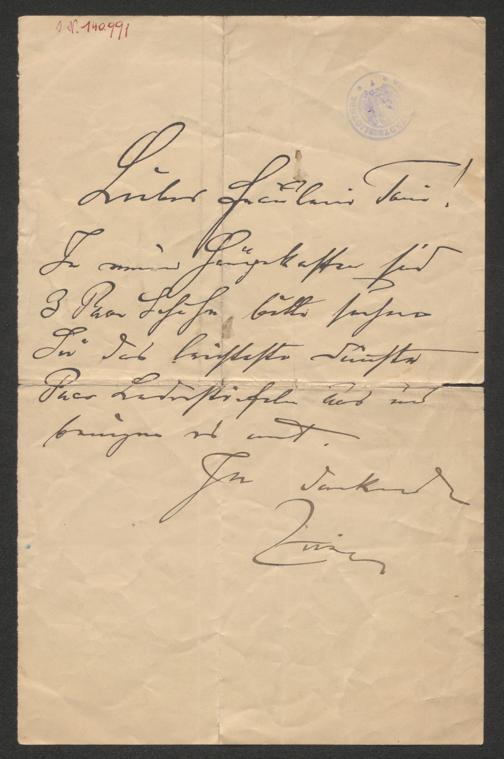 I.N. 140.991
Liebes Fräulein
In meinem Hängekasten sind
3 Paar Schuhe bitte suchen
Sie das leichteste dünnste
Paar Lederstiefeln aus und
bringen es mit.
Ihr dankender